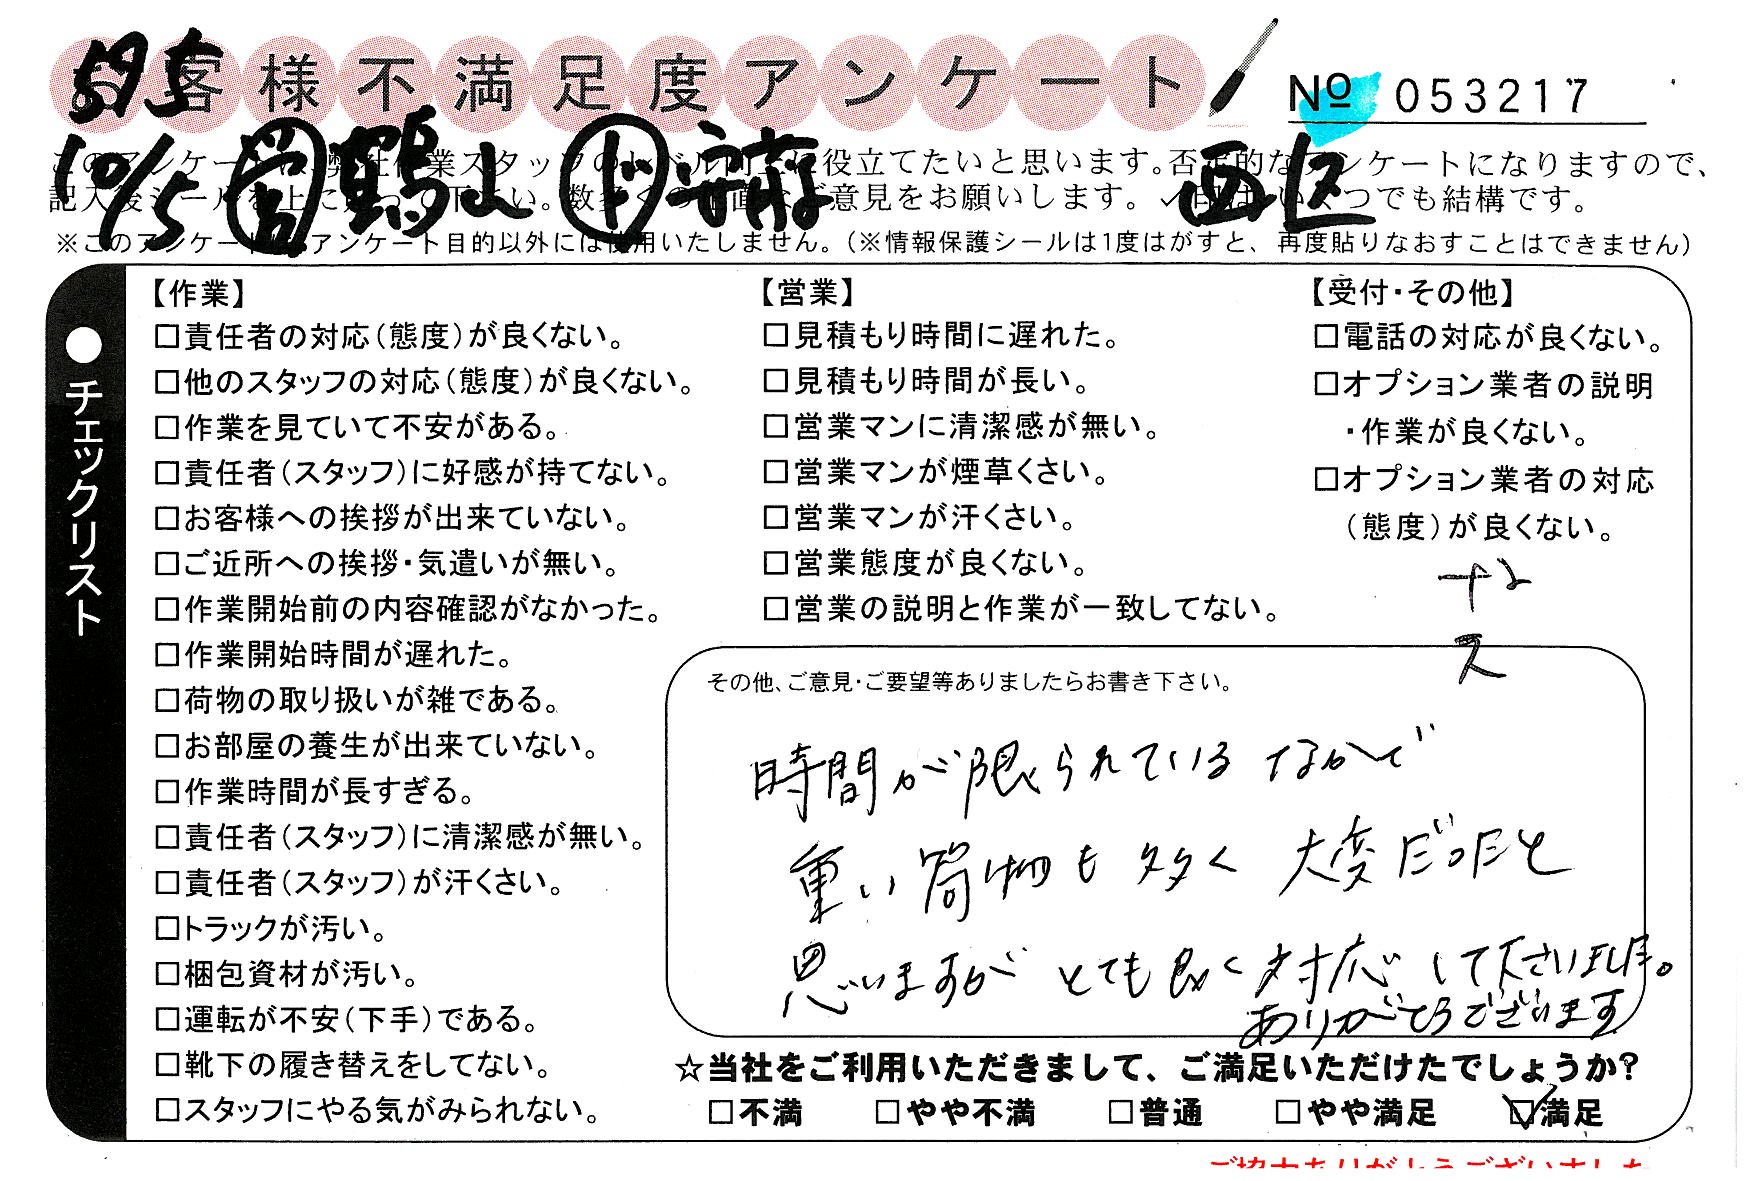 お客様不満足度アンケート
No 053217
10/5 営 鶴山 ド 安 西区
このアンケートは、弊社作業スタッフのレベル向上に役立てたいと思います。否定的なアンケートになりますので、
記入後シールを上に貼って下さい。数多くの正直なご意見をお願いします。✓印はいくつでも結構です。
※このアンケートはアンケート目的以外には使用いたしません。（※情報保護シールは1度はがすと、再度貼りなおすことはできません）
●チェックリスト
【作業】
□責任者の対応（態度）が良くない。
□他のスタッフの対応（態度）が良くない。
□作業を見ていて不安がある。
□責任者（スタッフ）に好感が持てない。
□お客様への挨拶が出来ていない。
□ご近所への挨拶・気遣いが無い。
□作業開始前の内容確認がなかった。
□作業開始時間が遅れた。
□荷物の取り扱いが雑である。
□お部屋の養生が出来ていない。
□作業時間が長すぎる。
□責任者（スタッフ）に清潔感が無い。
□責任者（スタッフ）が汗くさい。
□トラックが汚い。
□梱包資材が汚い。
□運転が不安（下手）である。
□靴下の履き替えをしてない。
□スタッフにやる気がみられない。
【営業】
□見積もり時間に遅れた。
□見積もり時間が長い。
□営業マンに清潔感が無い。
□営業マンが煙草くさい。
□営業マンが汗くさい。
□営業態度が良くない。
□営業の説明と作業が一致してない。
【受付・その他】
□電話の対応が良くない。
□オプション業者の説明
・作業が良くない。
□オプション業者の対応
（態度）が良くない。
ナシ
ス
その他、ご意見・ご要望等ありましたらお書き下さい。
時間が限られているなかで
重い荷物も多く大変だったと
思いますがとても良く対応して下さいました。
ありがとうございます
☆当社をご利用いただきまして、ご満足いただけたでしょうか？
□不満 □やや不満 □普通 □やや満足 ☑満足
ご協力ありがとうございました